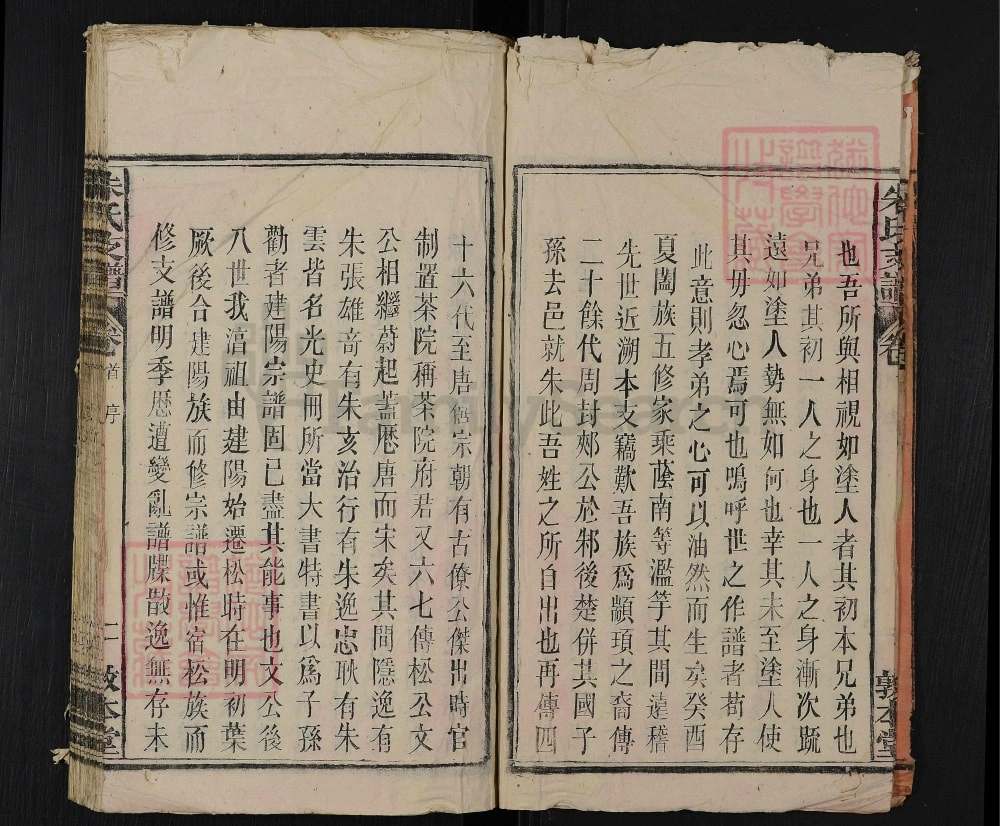 也吾所與相視如塗人者其初本兄弟也
兄弟其初一人之身也一人之身漸次疏
遠如塗人勢無如何也幸其未至塗人使
其毋忽心焉可也嗚呼世之作譜者茍存
此意則孝弟之心可以油然而生矣癸酉
夏闔族五修家乘蔭南等濫竽其間遠稽
先世近溯本支竊歎吾族爲顓頊之裔傳
二十餘代周封郟公於邾後楚併其國子
孫去邑就朱此吾姓之所自出也再傳四
十六代至唐僖宗朝有古僚公傑出時官
制置茶院稱茶院府君又六七傳松公文
公相繼蔚起蓋歷唐而宋矣其間隱逸有
朱張雄竒有朱亥治行有朱逸忠耿有朱
雲皆名光史冊所當大書特書以爲子孫
勸者建陽宗譜固已盡其能事也文公後
八世我濇祖由建陽始遷松時在明初葉
厥後合建陽族而修宗譜或惟宿松族而
修支譜明季歷遭變亂譜牒散逸無存未
朱氏支譜
卷首
序
二
敦本堂